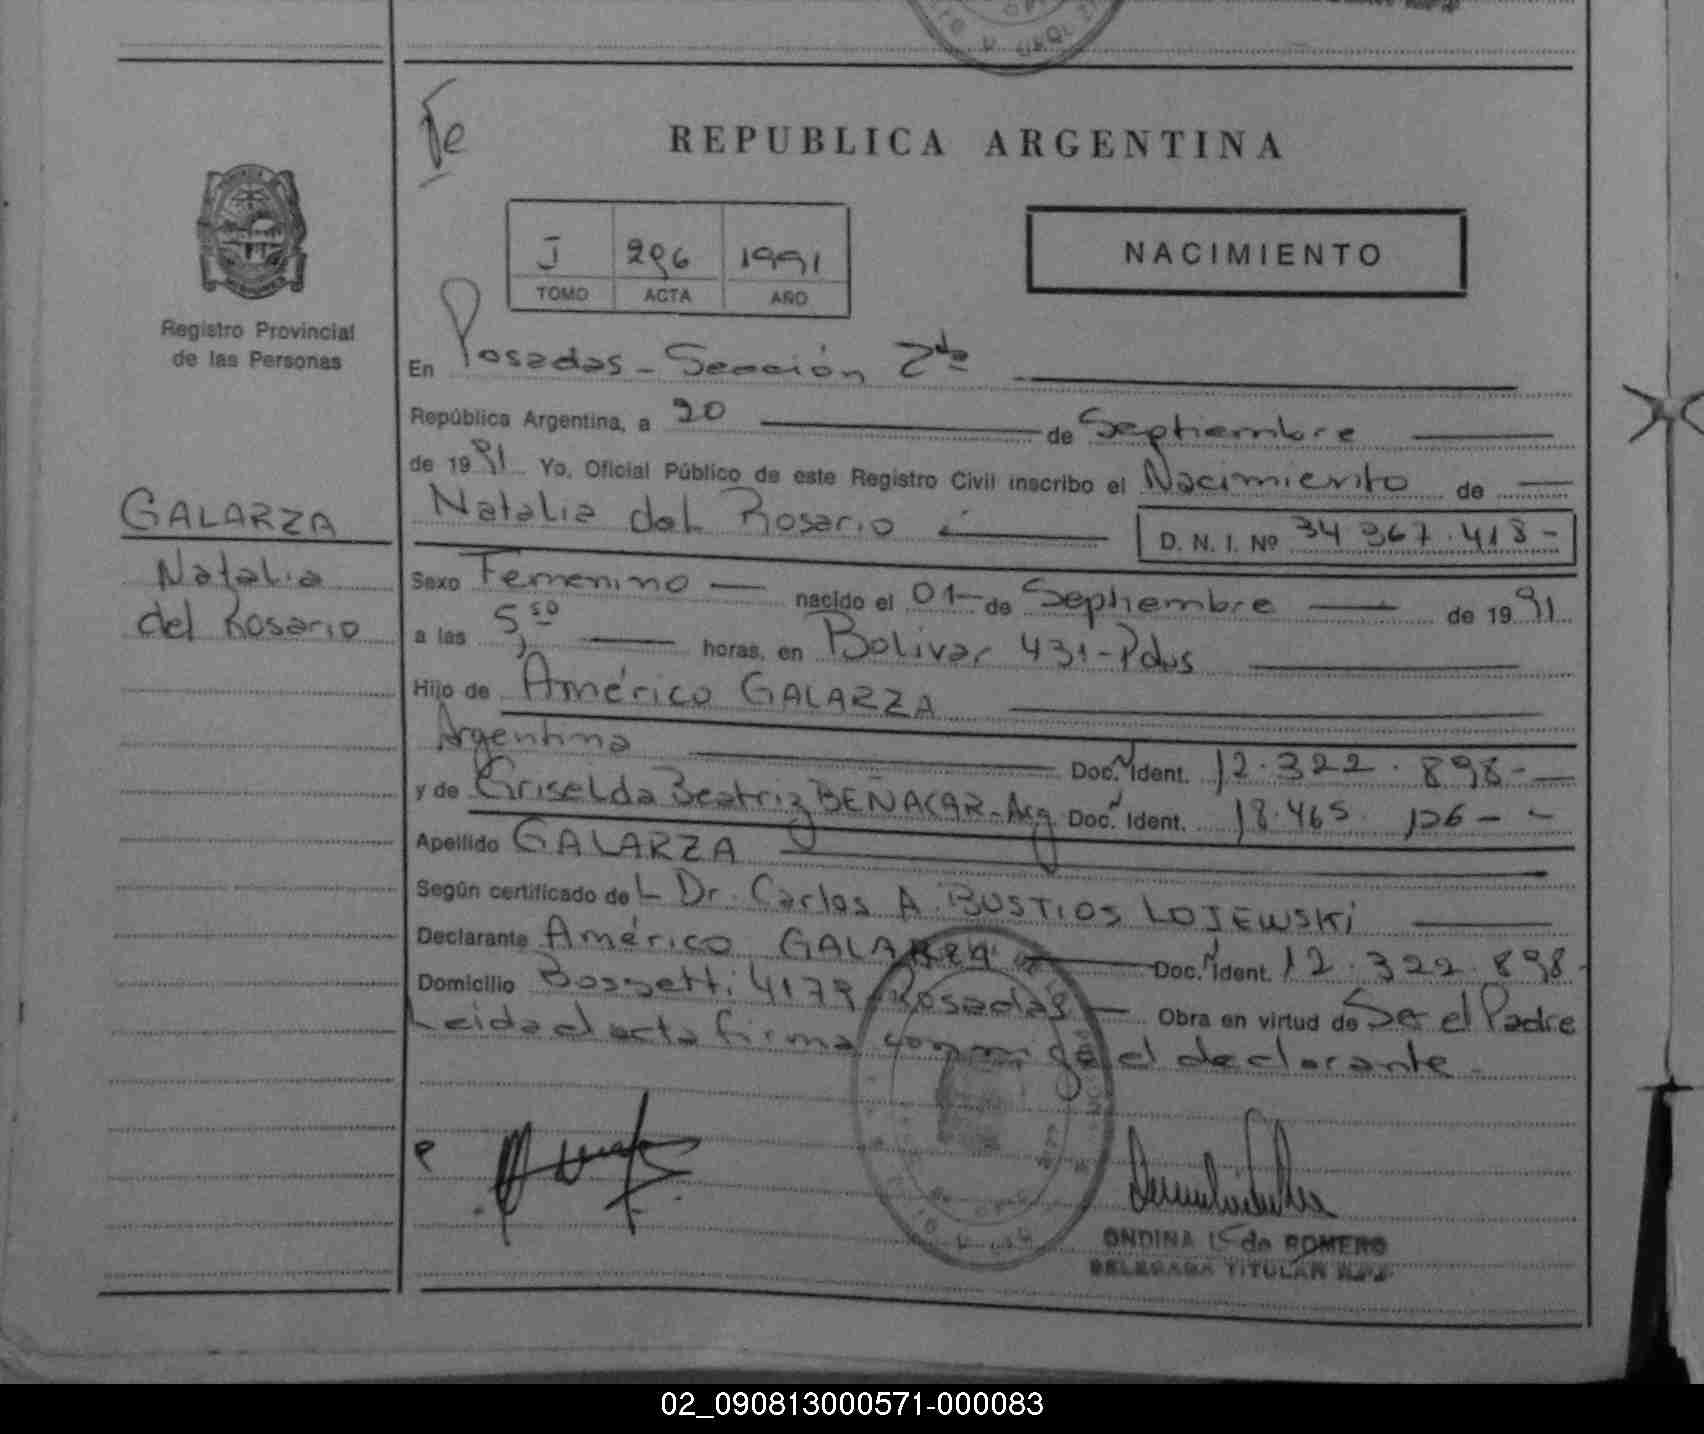 Fe
REPUBLICA ARGENTINA
J 296 1991
TOMO ACTA AÑO
NACIMIENTO
Registro Provincial
de las Personas
En Posadas - Sección 2da
República Argentina, a 20 de Septiembre
de 1991 Yo, Oficial Público de este Registro Civil inscribo el Nacimiento de
Natalia del Rosario D. N. I. Nº 34 367.418-
GALARZA
Natalia
del Rosario
Sexo Femenino nacido el 01 de Septiembre de 1991
a las horas, en Bolivar 431-Pdas
Hijo de Américo GALARZA
Argentina Doc. N Ident. 12.322.898-
y de Griselda Beatriz BEÑACAR-Arg Doc. N Ident. 18.465.126-
Apellido GALARZA
Según certificado del Dr. Carlos A. BUSTIOS LOJEWSKI
Declarante Américo GALARZA Doc. N Ident. 12.322.898-
Domicilio 4179 Posadas Obra en virtud de Ser el Padre
Leida el acta firma conmigo el declarante.
ONDINA de ROMERO
DELEGADA TITULAR R.P.P.
02_090813000571-000083